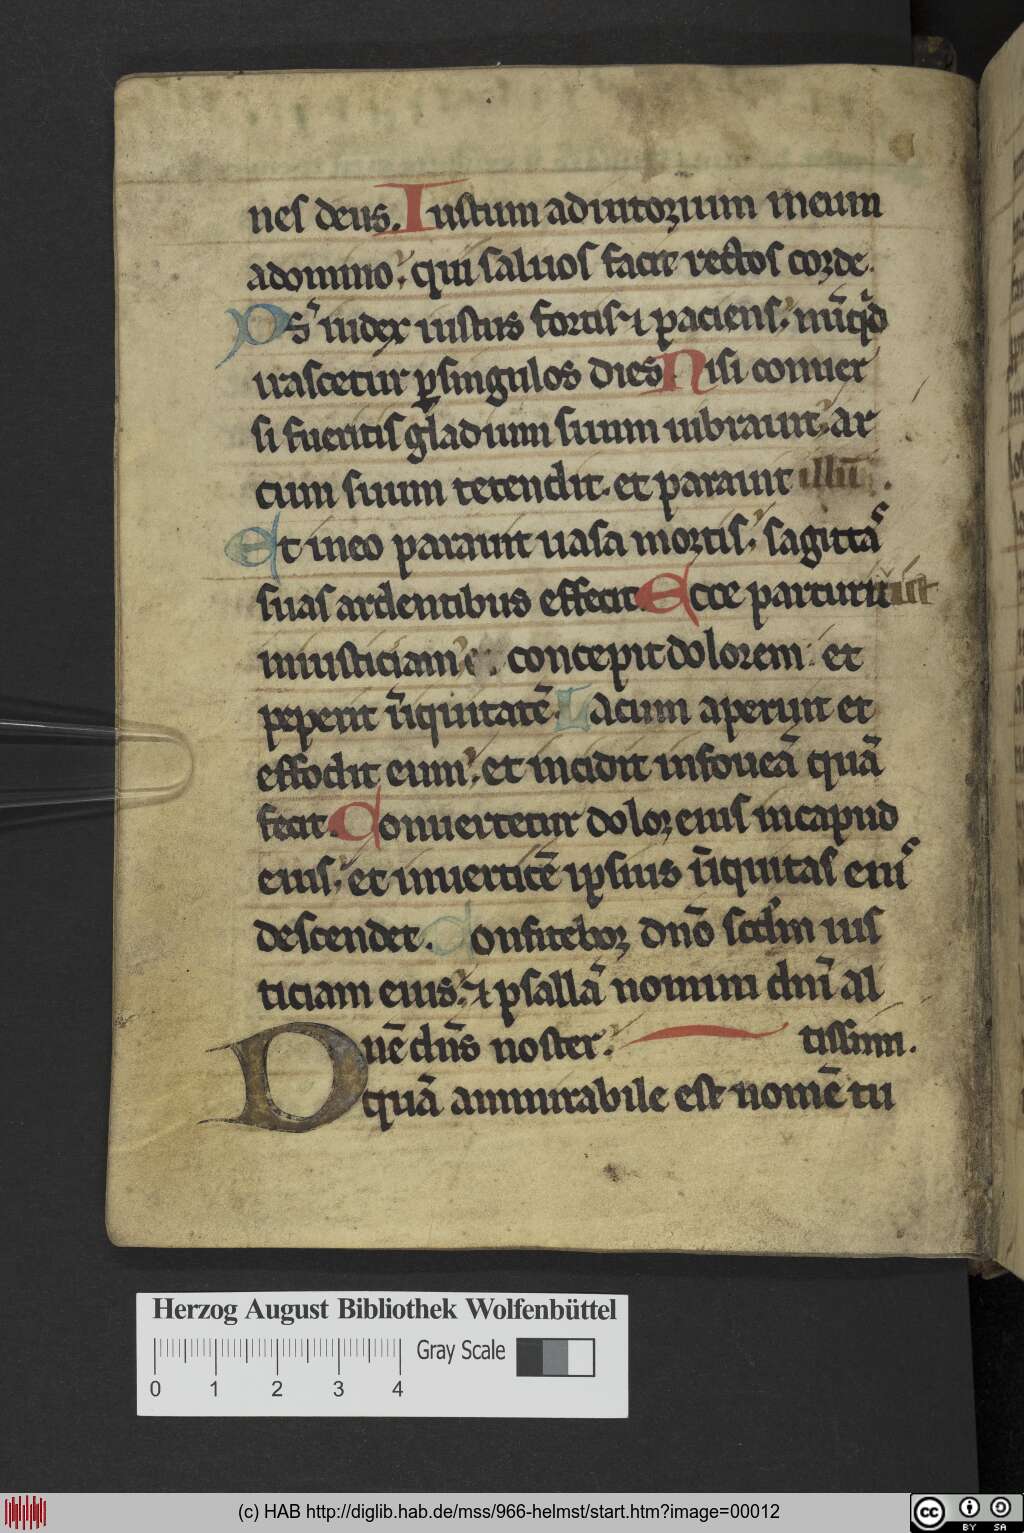 nes deus. Iustum adiutorium meum
a domino, qui saluos facit rectos corde.
Ds iudex iustus fortis ⁊ paciens, nūq̄d
irascetur ꝑ singulos dies Nisi conuer
si fueritis gladium suum uibrauit, ar
cum suum tetendit. et parauit illū.
Et in eo parauit uasa mortis, sagittas
suas ardentibus effecit. Ecce parturiuit
iniusticiam, concepit dolorem. et
peperit īiquitatē. Lacum aperuit et
effodit eum, et incidit in foueā quā
fecit. Conuertetur dolor eius in capud
eius, et in uerticē ipsius īiquitas eius
descendet. Confitebor dn̄o scd̄m ius
ticiam eius, ⁊ psallā nomini dn̄i al
tissimi.
Dn̄e dn̄s noster,
quā ammirabile est nomē tu
Herzog August Bibliothek Wolfenbüttel
Gray Scale
0 1 2 3 4
(c) HAB http://diglib.hab.de/mss/966-helmst/start.htm?image=00012
cc BY SA